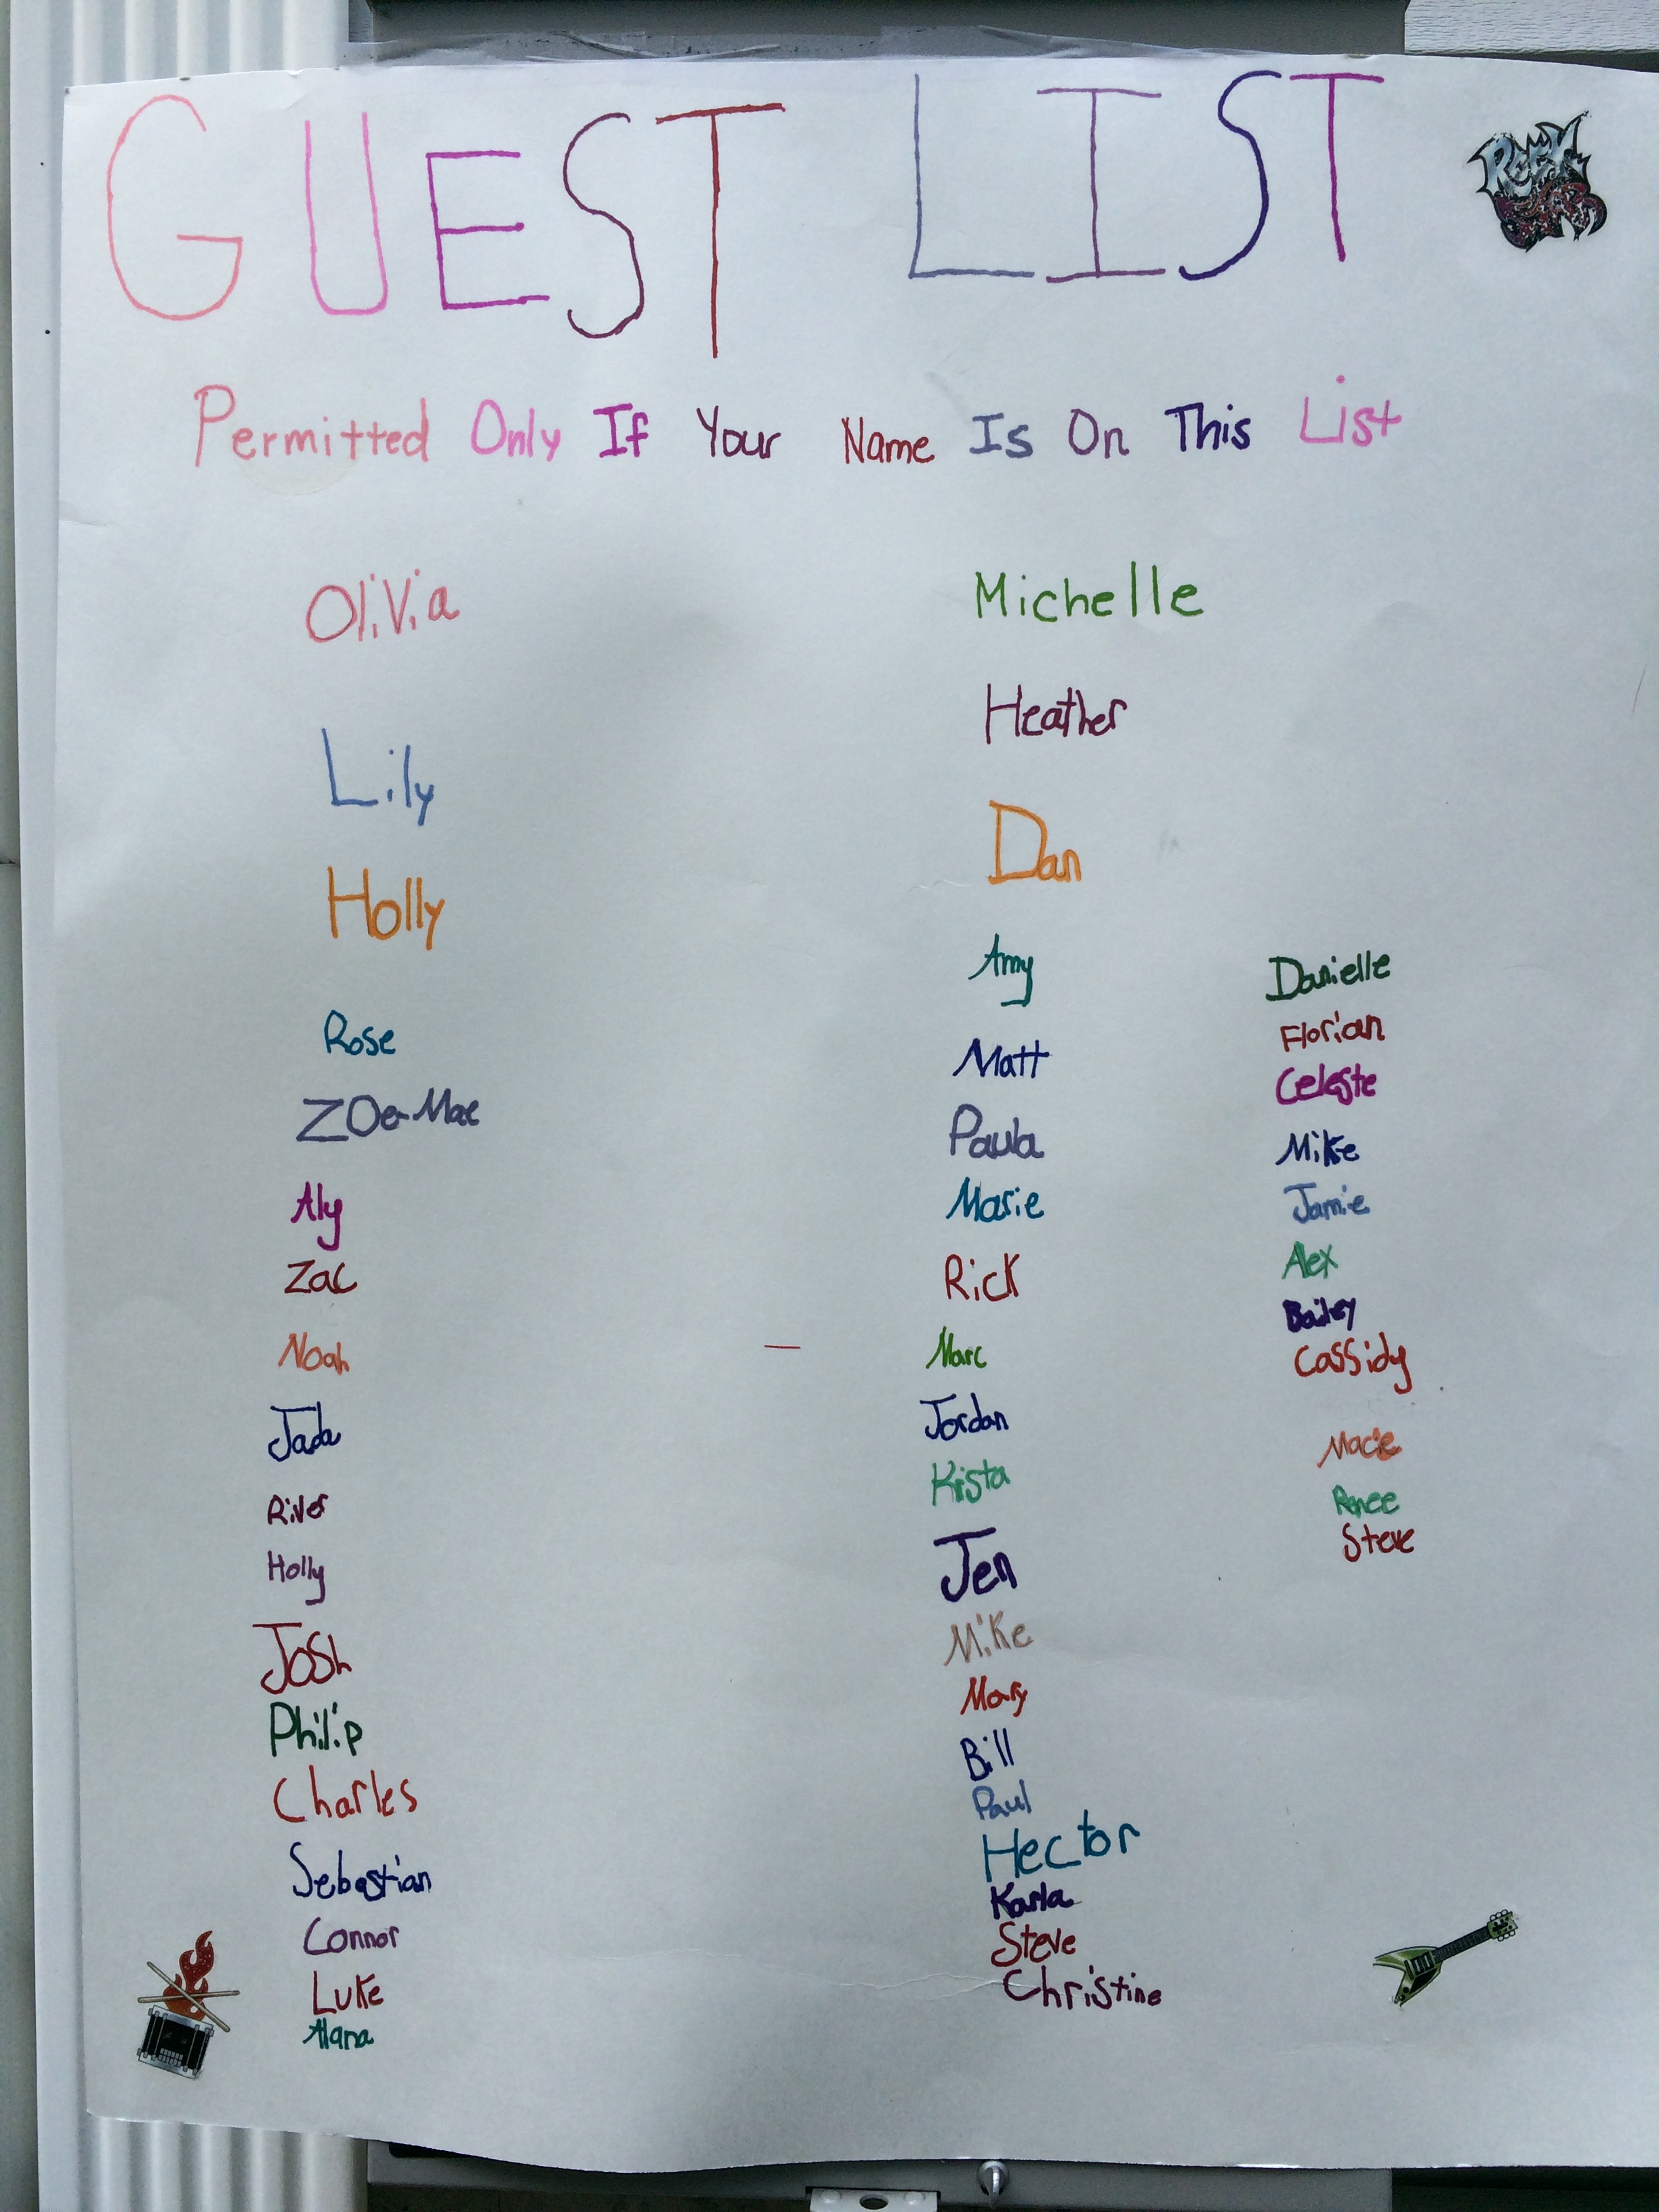 GUEST LIST
ROCK STAR
Permitted Only If Your Name Is On This List
Olivia
Lily
Holly
Rose
Zoe-Mae
Aly
Zac
Noah
Jada
River
Holly
Josh
Philip
Charles
Sebastian
Connor
Luke
Alana
Michelle
Heather
Dan
Amy
Matt
Paula
Marie
Rick
Marc
Jordan
Krista
Jen
Mike
Mary
Bill
Paul
Hector
Karla
Steve
Christine
Danielle
Florian
Celeste
Mike
Jamie
Alex
Bailey
Cassidy
Macie
Renee
Steve